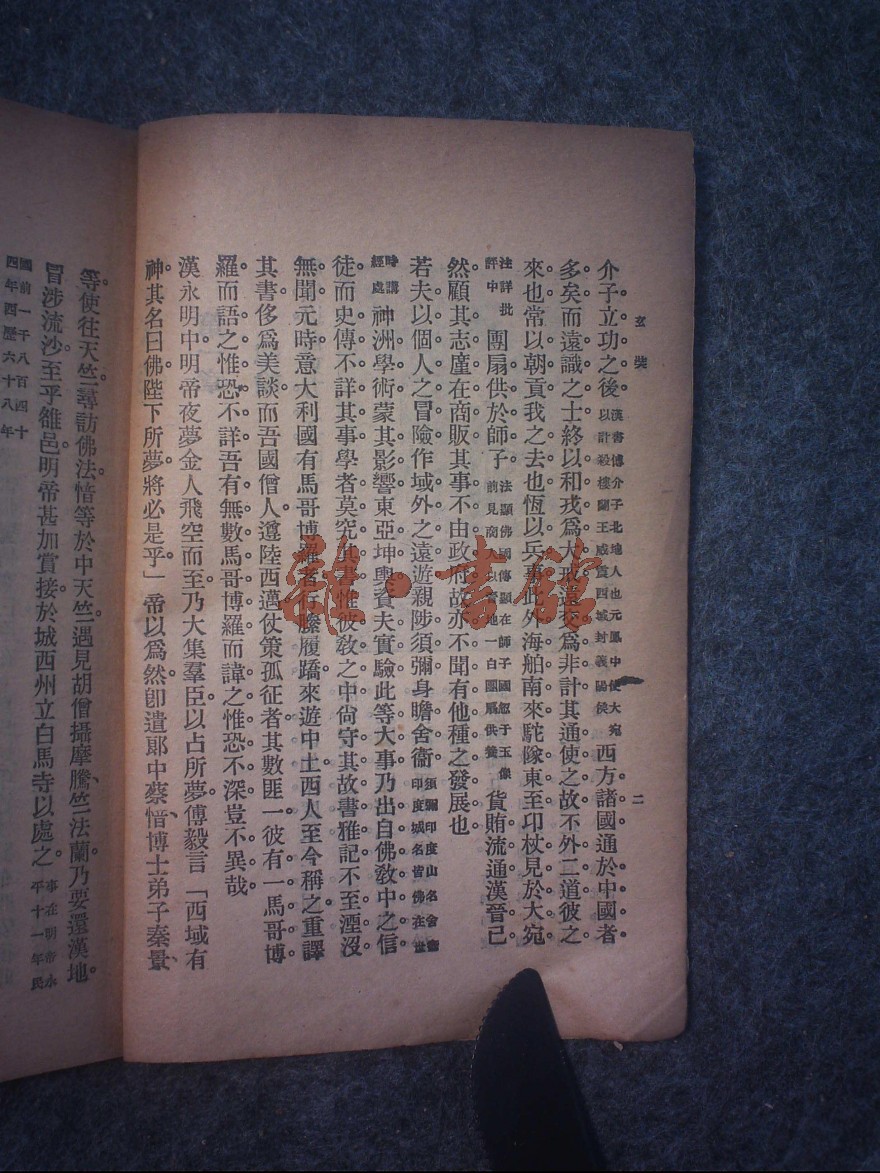 玄奘
二
介子立功之後。漢書傅介子北地人也元鳳中使大宛以計殺樓蘭王威震西域封義陽侯西方諸國通於中國者
多矣。而遠識之士。終以和戎爲大戒。遠交爲非計。其通使之故。不外二道。彼之
來也。常以朝貢。我之去也。恆以兵事。此外海舶南來。駝隊東至。卬杖見於大宛。
注詳批評中團扇供於師子。法顯佛國傳顯在師子國忽于玉像前見商人以晉地一白團扇供養貨賄流通。漢晉已
然。顧其志廑在商販。其事不由政府。故亦不聞有他種之發展也。
若夫以個人之冒險。作域外之遠遊。親陟須彌。身瞻舍衞。須彌印度山名舍衞印度城名皆佛在世
時講經處神洲學術。蒙其影響。東亞坤輿。資夫實驗。此等大事。乃出自佛敎中之信
徒。而史傳不詳其事。學者莫究其書。惟彼敎之中。尙守其故書雅記。不至湮沒
無聞。元時意大利國有馬哥博羅者。行縢履蹻。來遊中土。西人至今稱之。重譯
其書。侈爲美談。而吾國僧人。遵陸西邁。仗策孤征者。其數匪一。彼有一馬哥博
羅而語之惟恐不詳。吾有無數馬哥博羅而諱之惟恐不深。豈不異哉。
漢永明中。明帝夜夢金人飛空而至。乃大集羣臣以占所夢。傅毅言「西域有
神。其名曰佛。陛下所夢。將必是乎。」帝以爲然。卽遣郞中蔡愔、博士弟子秦景、
等。使往天竺。尋訪佛法。愔等於中天竺遇見胡僧攝摩騰、竺法蘭。乃要還漢地。
冒涉流沙。至乎雒邑。明帝甚加賞接。於城西州立白馬寺以處之。事在明帝永平十一年民
國前一千八百四十四年西歷六十八年
龍·書館